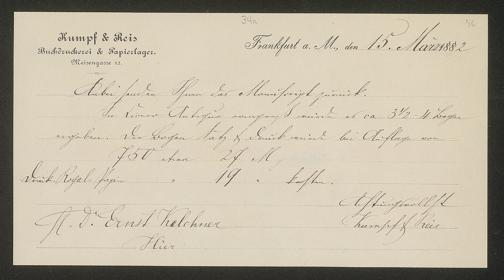 34a
Kumpf & Reis
Buchdruckerei & Papierlager.
Meisengasse
Frankfurt a. M., den 15. März 1882
Anbei senden Ihnen das Manuscript zurück.
In Cicero Antiqua würde es ca 3½-4 Bogen
ergeben. Der Bogen Satz & Druck würde bei Auflage von
750 28 M
Druck Royal Papier " 19 " kosten.
Achtungsvollst
Kumpf & Reis
H. Dr. Ernst Kelchner
Hier